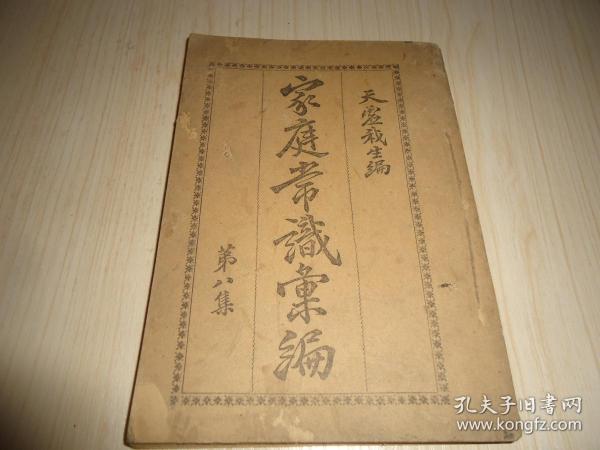 天虚我生编
家庭常識彙編
第八集
孔夫子旧书网
www.kongfz.com